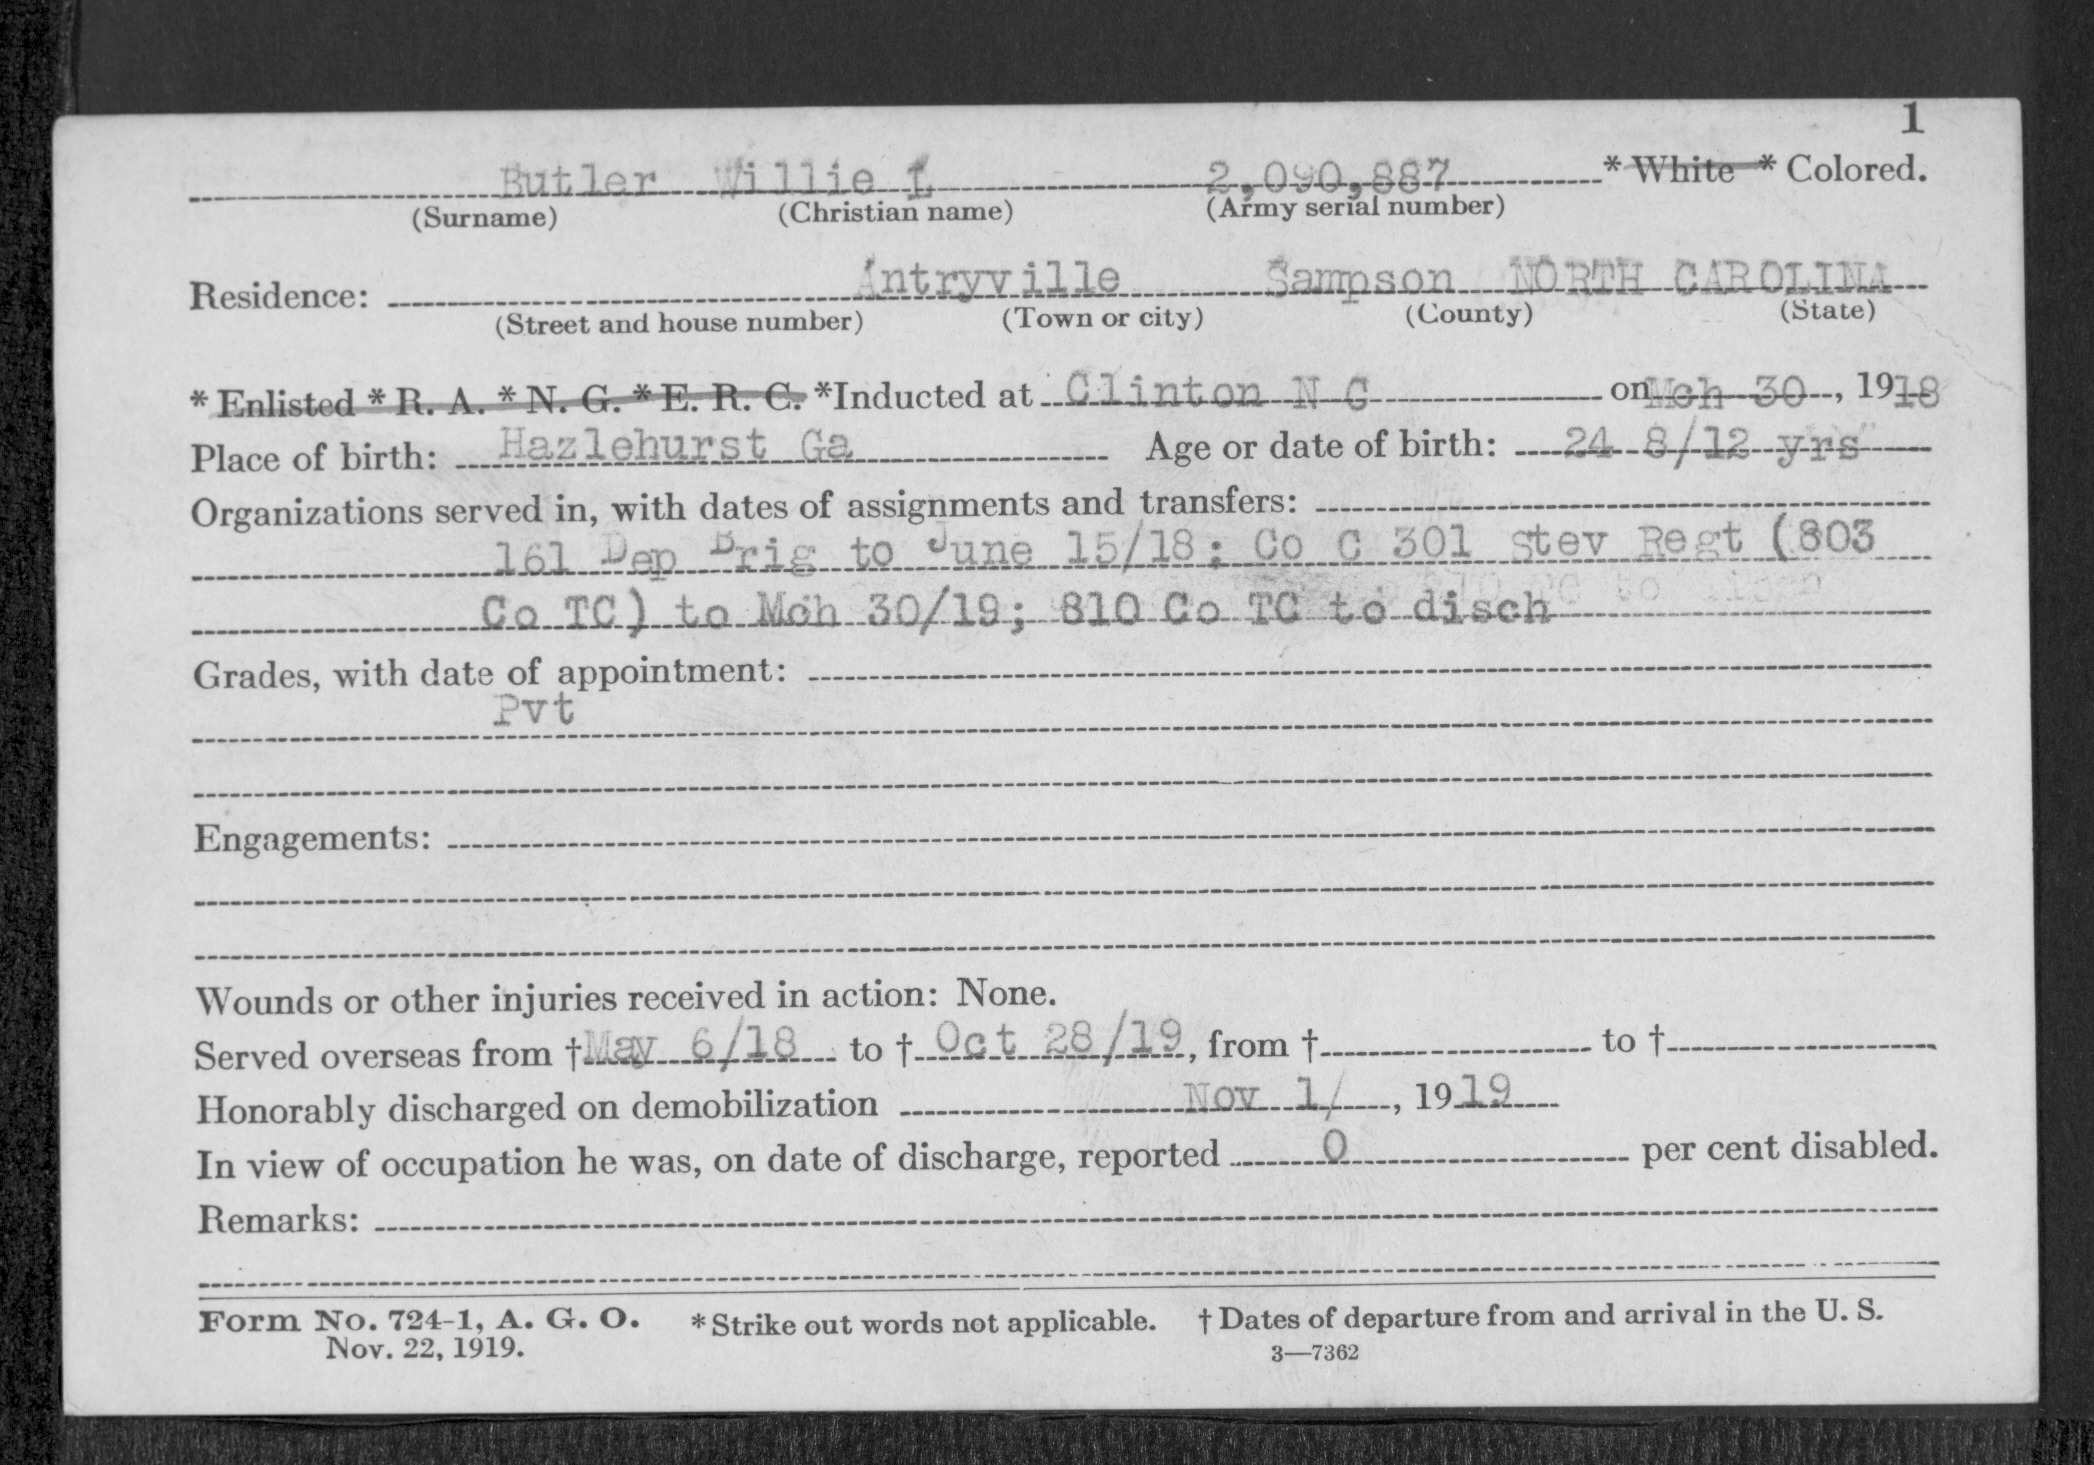 1
Butler Willie L 2,090,887 * White * Colored.
(Surname) (Christian name) (Army serial number)
Residence: Antryville Sampson NORTH CAROLINA
(Street and house number) (Town or city) (County) (State)
* Enlisted * R. A. * N. G. * E. R. C. *Inducted at Clinton N C on Mch 30, 1918
Place of birth: Hazlehurst Ga Age or date of birth: 24 8/12 yrs
Organizations served in, with dates of assignments and transfers:
161 Dep Brig to June 15/18; Co C 301 Stev Regt (803
Co TC) to Mch 30/19; 810 Co TC to disch
Grades, with date of appointment:
Pvt
Engagements:
Wounds or other injuries received in action: None.
Served overseas from † May 6/18 to † Oct 28/19, from † to †
Honorably discharged on demobilization Nov 1/, 1919
In view of occupation he was, on date of discharge, reported 0 per cent disabled.
Remarks:
Form No. 724-1, A. G. O. * Strike out words not applicable. † Dates of departure from and arrival in the U. S.
Nov. 22, 1919. 3—7362